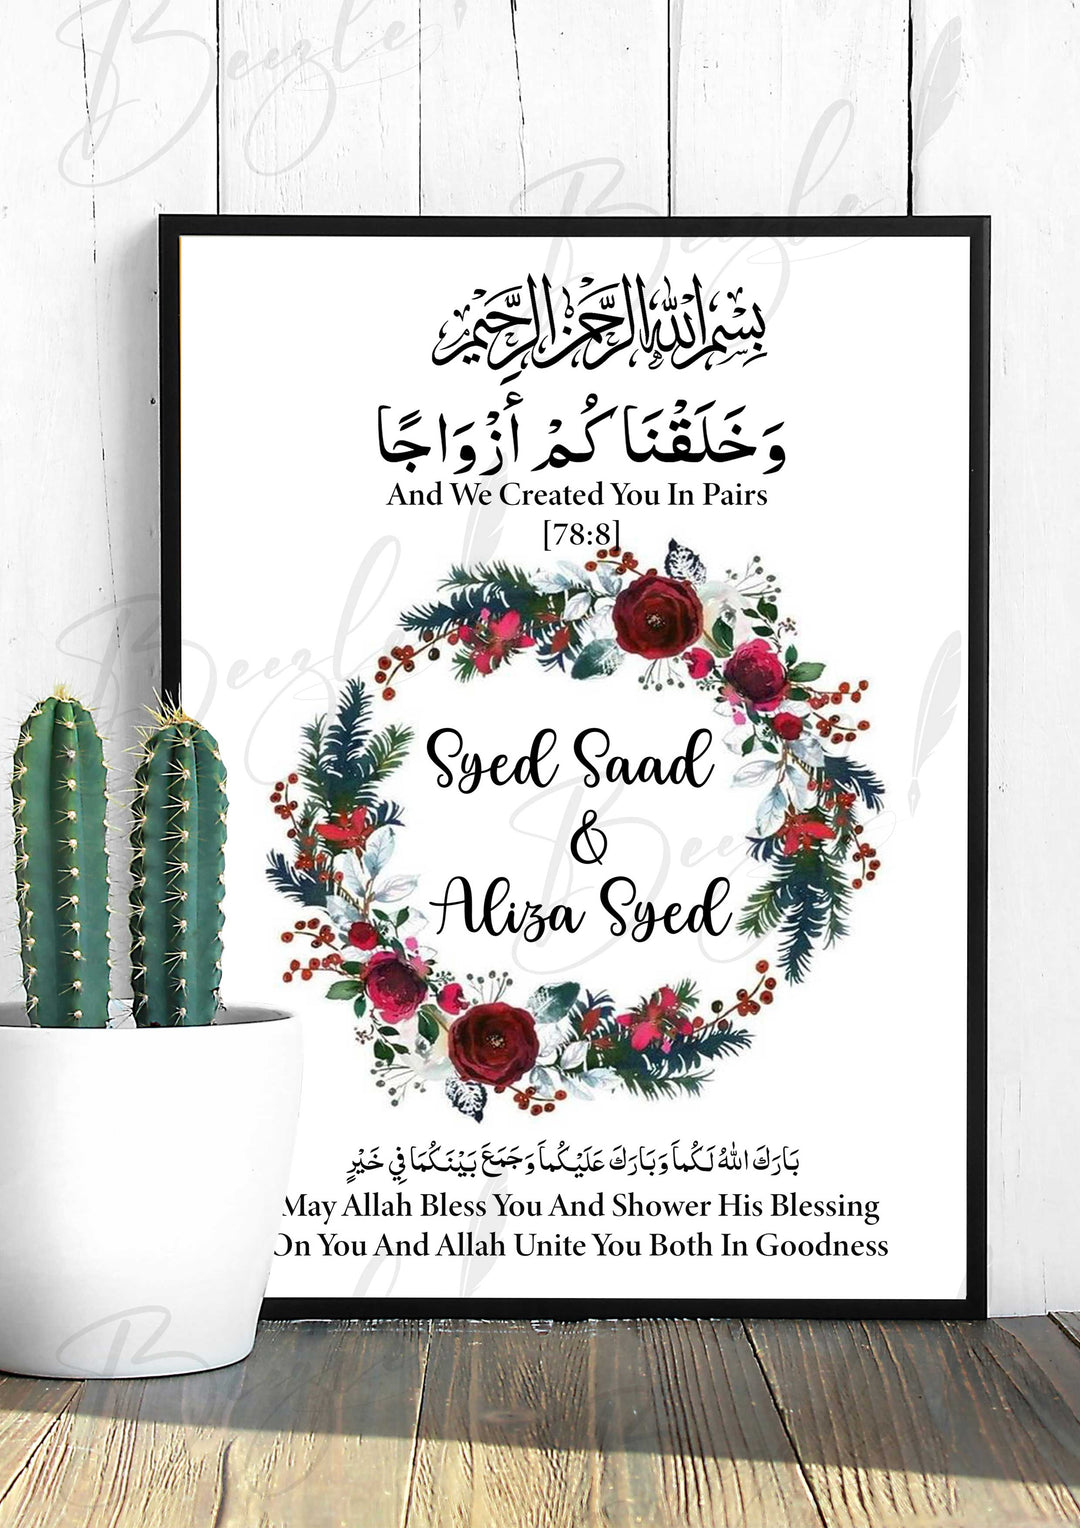 Beezle
Beezle
بِسْمِ اللهِ الرَّحْمٰنِ الرَّحِيْمِ
وَخَلَقْنَاكُمْ أَزْوَاجًا
And We Created You In Pairs
[78:8]
Beezle
Syed Saad
&
Beezle
Aliza Syed
بَارَكَ اللهُ لَكُمَا وَبَارَكَ عَلَيْكُمَا وَجَمَعَ بَيْنَكُمَا فِي خَيْرٍ
May Allah Bless You And Shower His Blessing
On You And Allah Unite You Both In Goodness
Beezle
Beezle